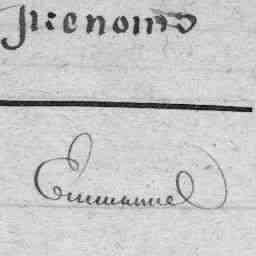 Prénoms
Emmanuel